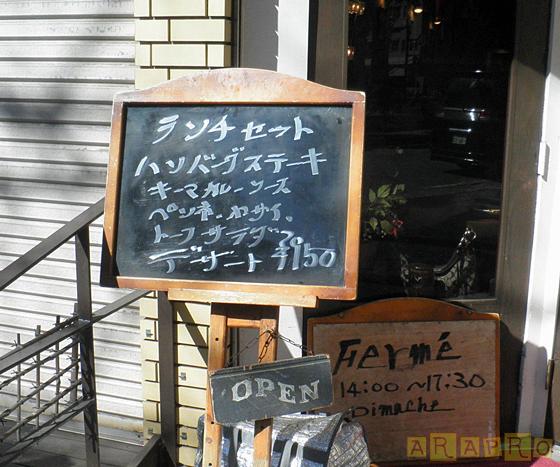 ランチセット
ハンバーグステーキ
キーマカレーソース
ペンネ.ヤサイ.
トーフサラダ
デザート ¥1150
OPEN
Fermé
14:00~17:30
Dimache
ARAPRO